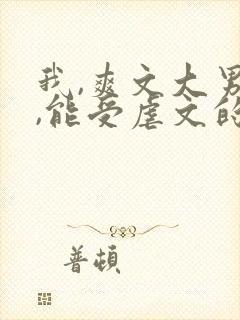 我,爽文大男
,能受虐文的
普頓